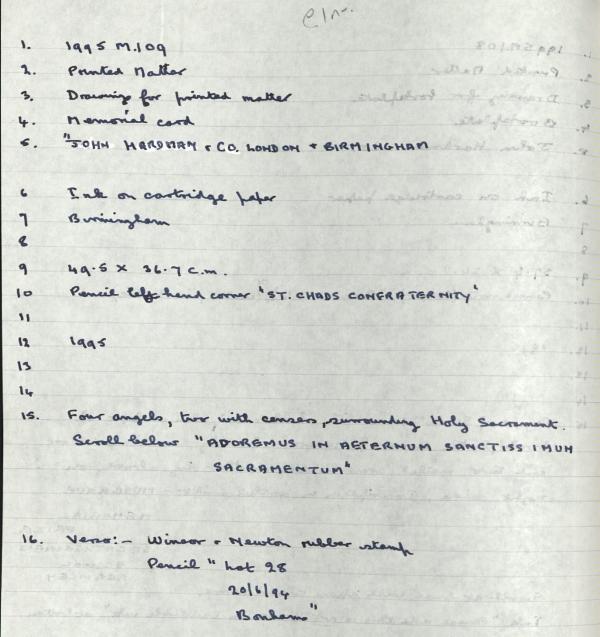 1. 1995 M.109
2. Printed Matter
3. Drawing for printed matter
4. Memorial card
5. "JOHN HARDMAN & CO. LONDON & BIRMINGHAM
6 Ink on cartridge paper
7 Birmingham
8
9 49.5 X 36.7 C.m.
10 Pencil left hand corner "ST. CHADS CONFRATERNITY"
11
12 1995
13
14
15. Four angels, two with censers, surrounding Holy Sacrament.
Scroll below "ADOREMUS IN AETERNUM SANCTISSIMUM
SACRAMENTUM"
16. Verso:- Winsor & Newton rubber stamp
Pencil " Lot 28
20/6/94
Bonhams"